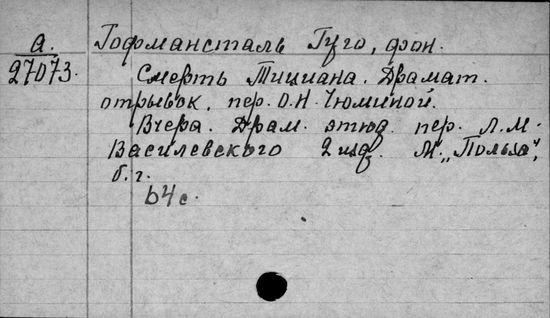 А.
27073.
Гофмансталь Гуго, фон.
Смерть Тициана. Драмат.
отрывок, пер. О.Н. Чюминой.
Вчера. Драм. этюд, пер. Л.М.
Василевского 2 изд. М. „Польза",
б. г.
64 с.